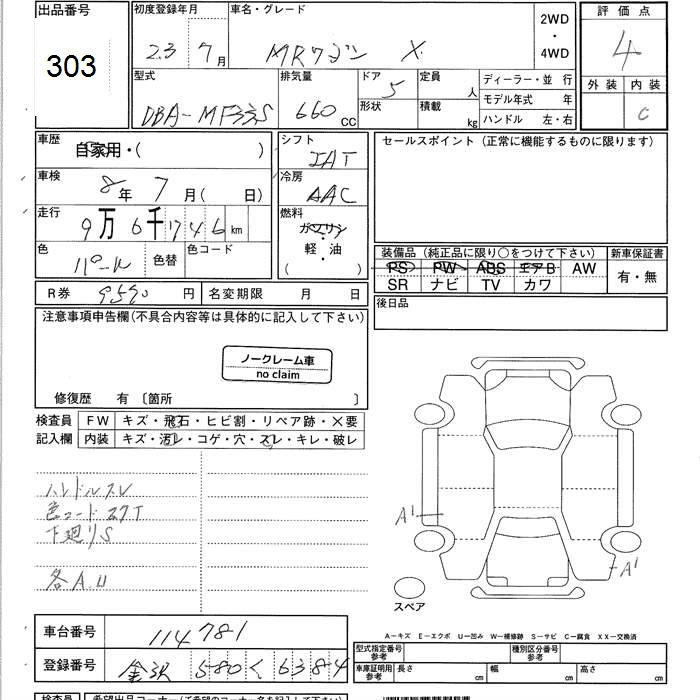 出品番号
303
初度登録年月
23年7月
車名・グレード
MRワゴン X
2WD
・
4WD
評価点
4
外装 内装
C
型式
DBA-MF33S
排気量
660 CC
ドア
5
形状
定員
人
積載
kg
ディーラー・並 行
モデル年式 年
ハンドル 左・右
車歴
自家用・( )
車検
8年 7月( 日)
走行
9万6千746km
色
パール
色替
色コード
シフト
IAT
冷房
AAC
燃料
ガソリン
軽・油
( )
セールスポイント(正常に機能するものに限ります)
装備品(純正品に限り○をつけて下さい)
PS PW ABS エアB AW
SR ナビ TV カワ
新車保証書
有・無
R券 9590円
名変期限 月 日
後日品
注意事項申告欄(不具合内容等は具体的に記入して下さい)
ノークレーム車
no claim
修復歴 有〔箇所 〕
検査員
記入欄
FW キズ・飛石・ヒビ割・リペア跡・×要
内装 キズ・汚レ・コゲ・穴・スレ・キレ・破レ
ハンドルスレ
色コードZ7T
下廻りS
各A.U
A1
A1
スペア
A－キズ E－エクボ U－凹み W－補修跡 S－サビ C－腐食 XX－交換済
車台番号 114781
登録番号 金沢 580 く 6384
型式指定番号
参考
種別区分番号
参考
車庫証明用
参考
長さ cm 幅 cm 高さ cm
検査員
希望出品コーナー(ご希望のコーナー名を記入下さい)